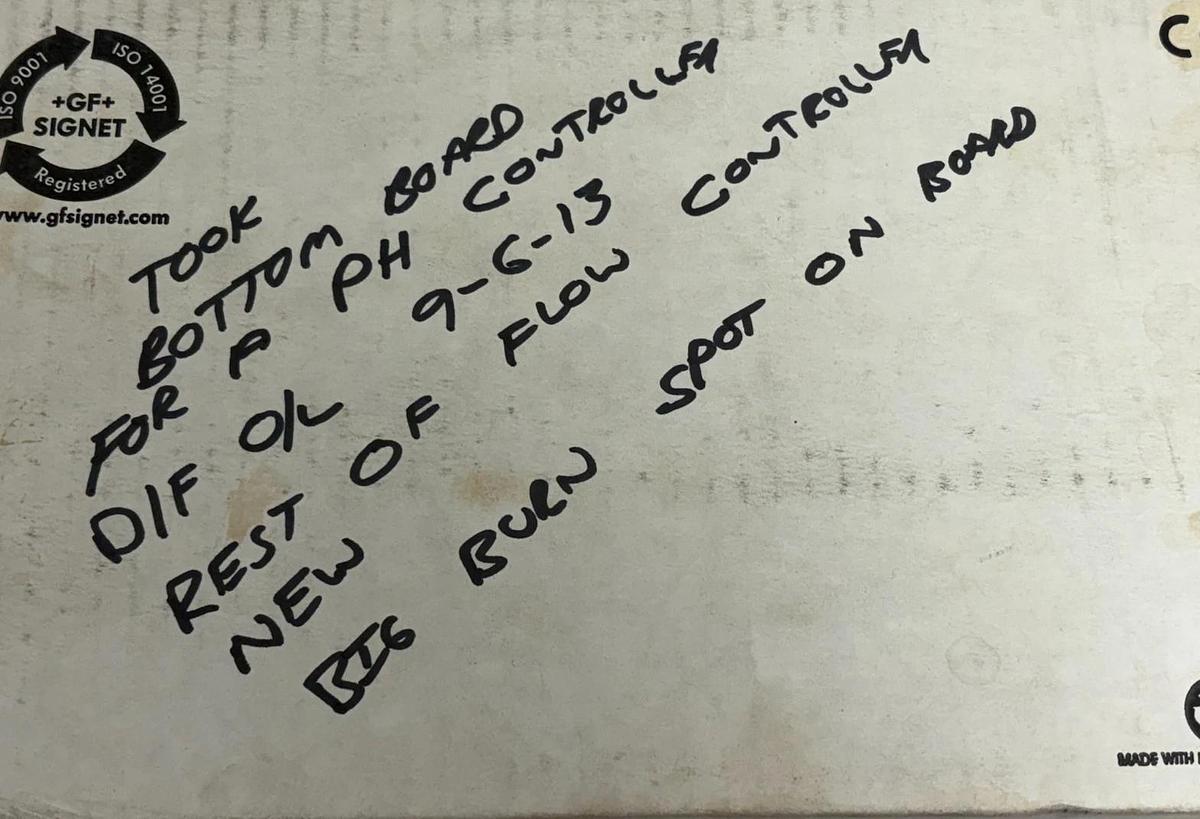 ISO 9001
ISO 14001
+GF+
SIGNET
Registered
www.gfsignet.com
TOOK
BOTTOM BOARD
FOR A PH CONTROLLER
DIF O/L 9-6-13
REST OF FLOW CONTROLLER
NEW
BIG BURN SPOT ON BOARD
MADE WITH